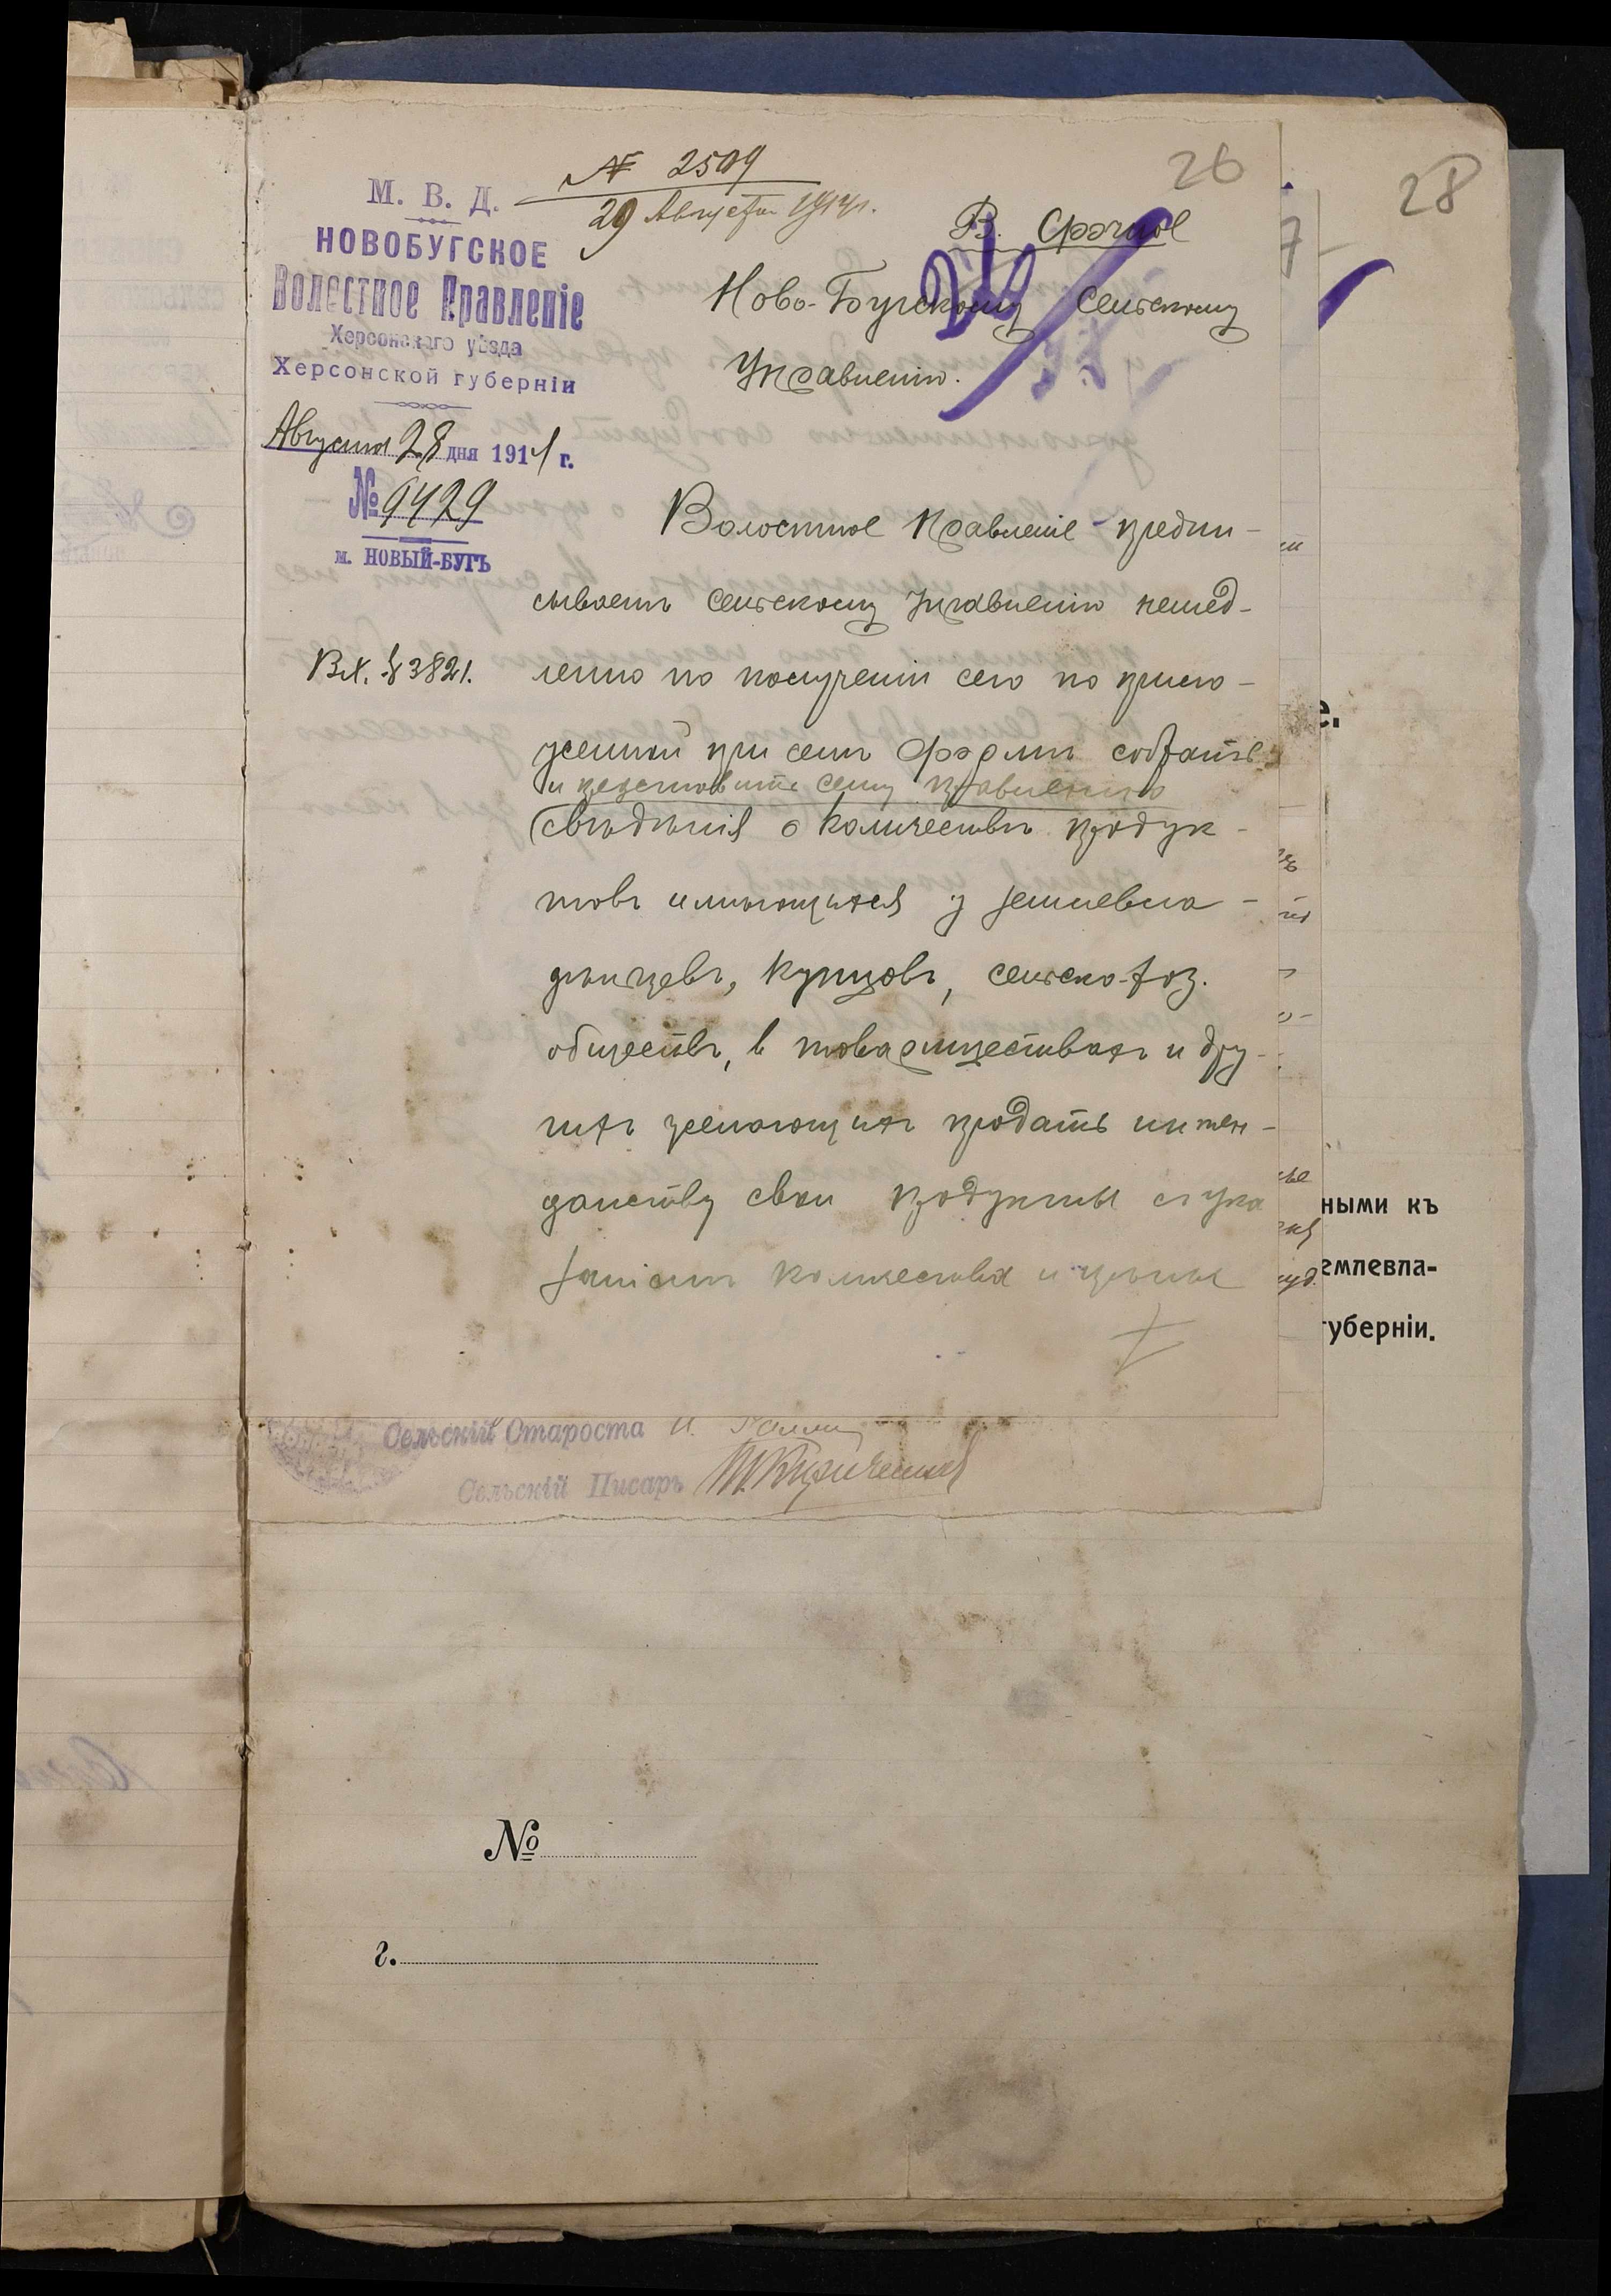 26
28
№ 2509
29 Августа 1914 г.
М. В. Д.
НОВОБУГСКОЕ
Волостное Правленіе
Херсонскаго уѣзда
Херсонской губерніи
Августа 28 дня 1914 г.
№ 9429
м. НОВЫЙ-БУГЪ
Вх. № 3821.
В. Срочное
Ново-Бугскому Сельскому
Управленію.
Волостное Правленіе предпи-
сываетъ Сельскому Управленію немед-
ленно по полученіи сего по прило-
женной при семъ формѣ собрать
и представить сему правленію
свѣдѣнія о количествѣ продук-
товъ имѣющихся у землевла-
дѣльцевъ, купцовъ, сельско-хоз.
обществъ, в товариществахъ и дру-
гихъ желающихъ продать интен-
данству свои продукты съ ука
заніемъ количества и цѣны
Сельскій Староста
Сельскій Писарь
7
е.
ными къ
емлевла-
губерніи.
№
г.